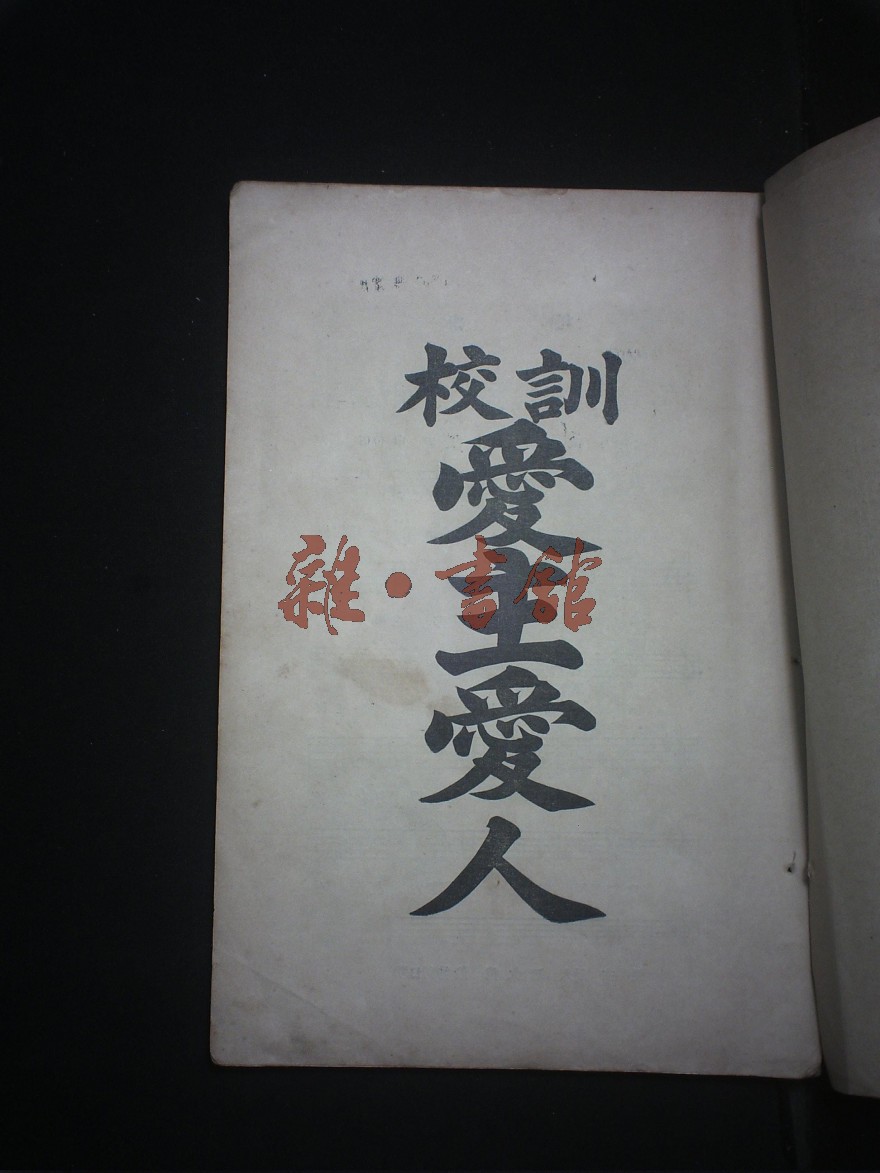 校訓
愛主愛人
雜·書館